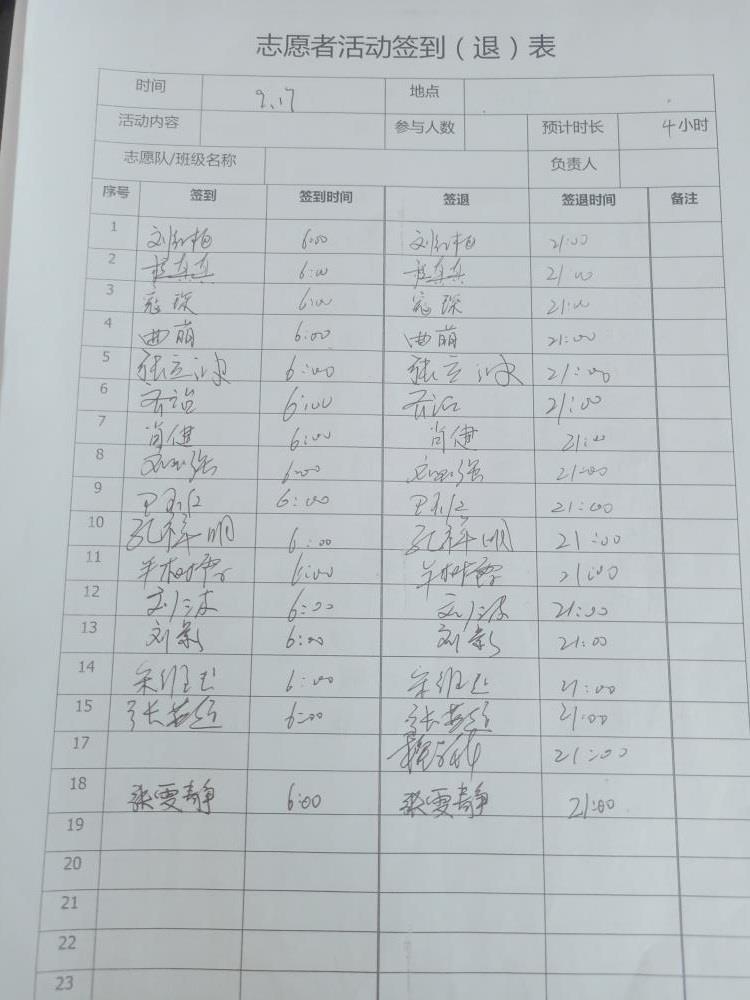 志愿者活动签到（退）表
时间 9.17 地点
活动内容 参与人数 预计时长 4小时
志愿队/班级名称 负责人
序号 签到 签到时间 签退 签退时间 备注
1 刘红梅 6:00 刘红梅 21:00
2 真真 6:00 真真 21:00
3 寇琛 6:00 寇琛 21:00
4 曲萌 6:00 曲萌 21:00
5 张立冰 6:00 张立冰 21:00
6 6:00 21:00
7 肖健 6:00 肖健 21:00
8 强 6:00 强 21:00
9 6:00 21:00
10 孔祥明 6:00 孔祥明 21:00
11 6:00 21:00
12 刘波 6:00 刘波 21:00
13 刘影 6:00 刘影 21:00
14 6:00 21:00
15 张 6:00 张 21:00
17 21:00
18 张雯静 6:00 张雯静 21:00
19
20
21
22
23